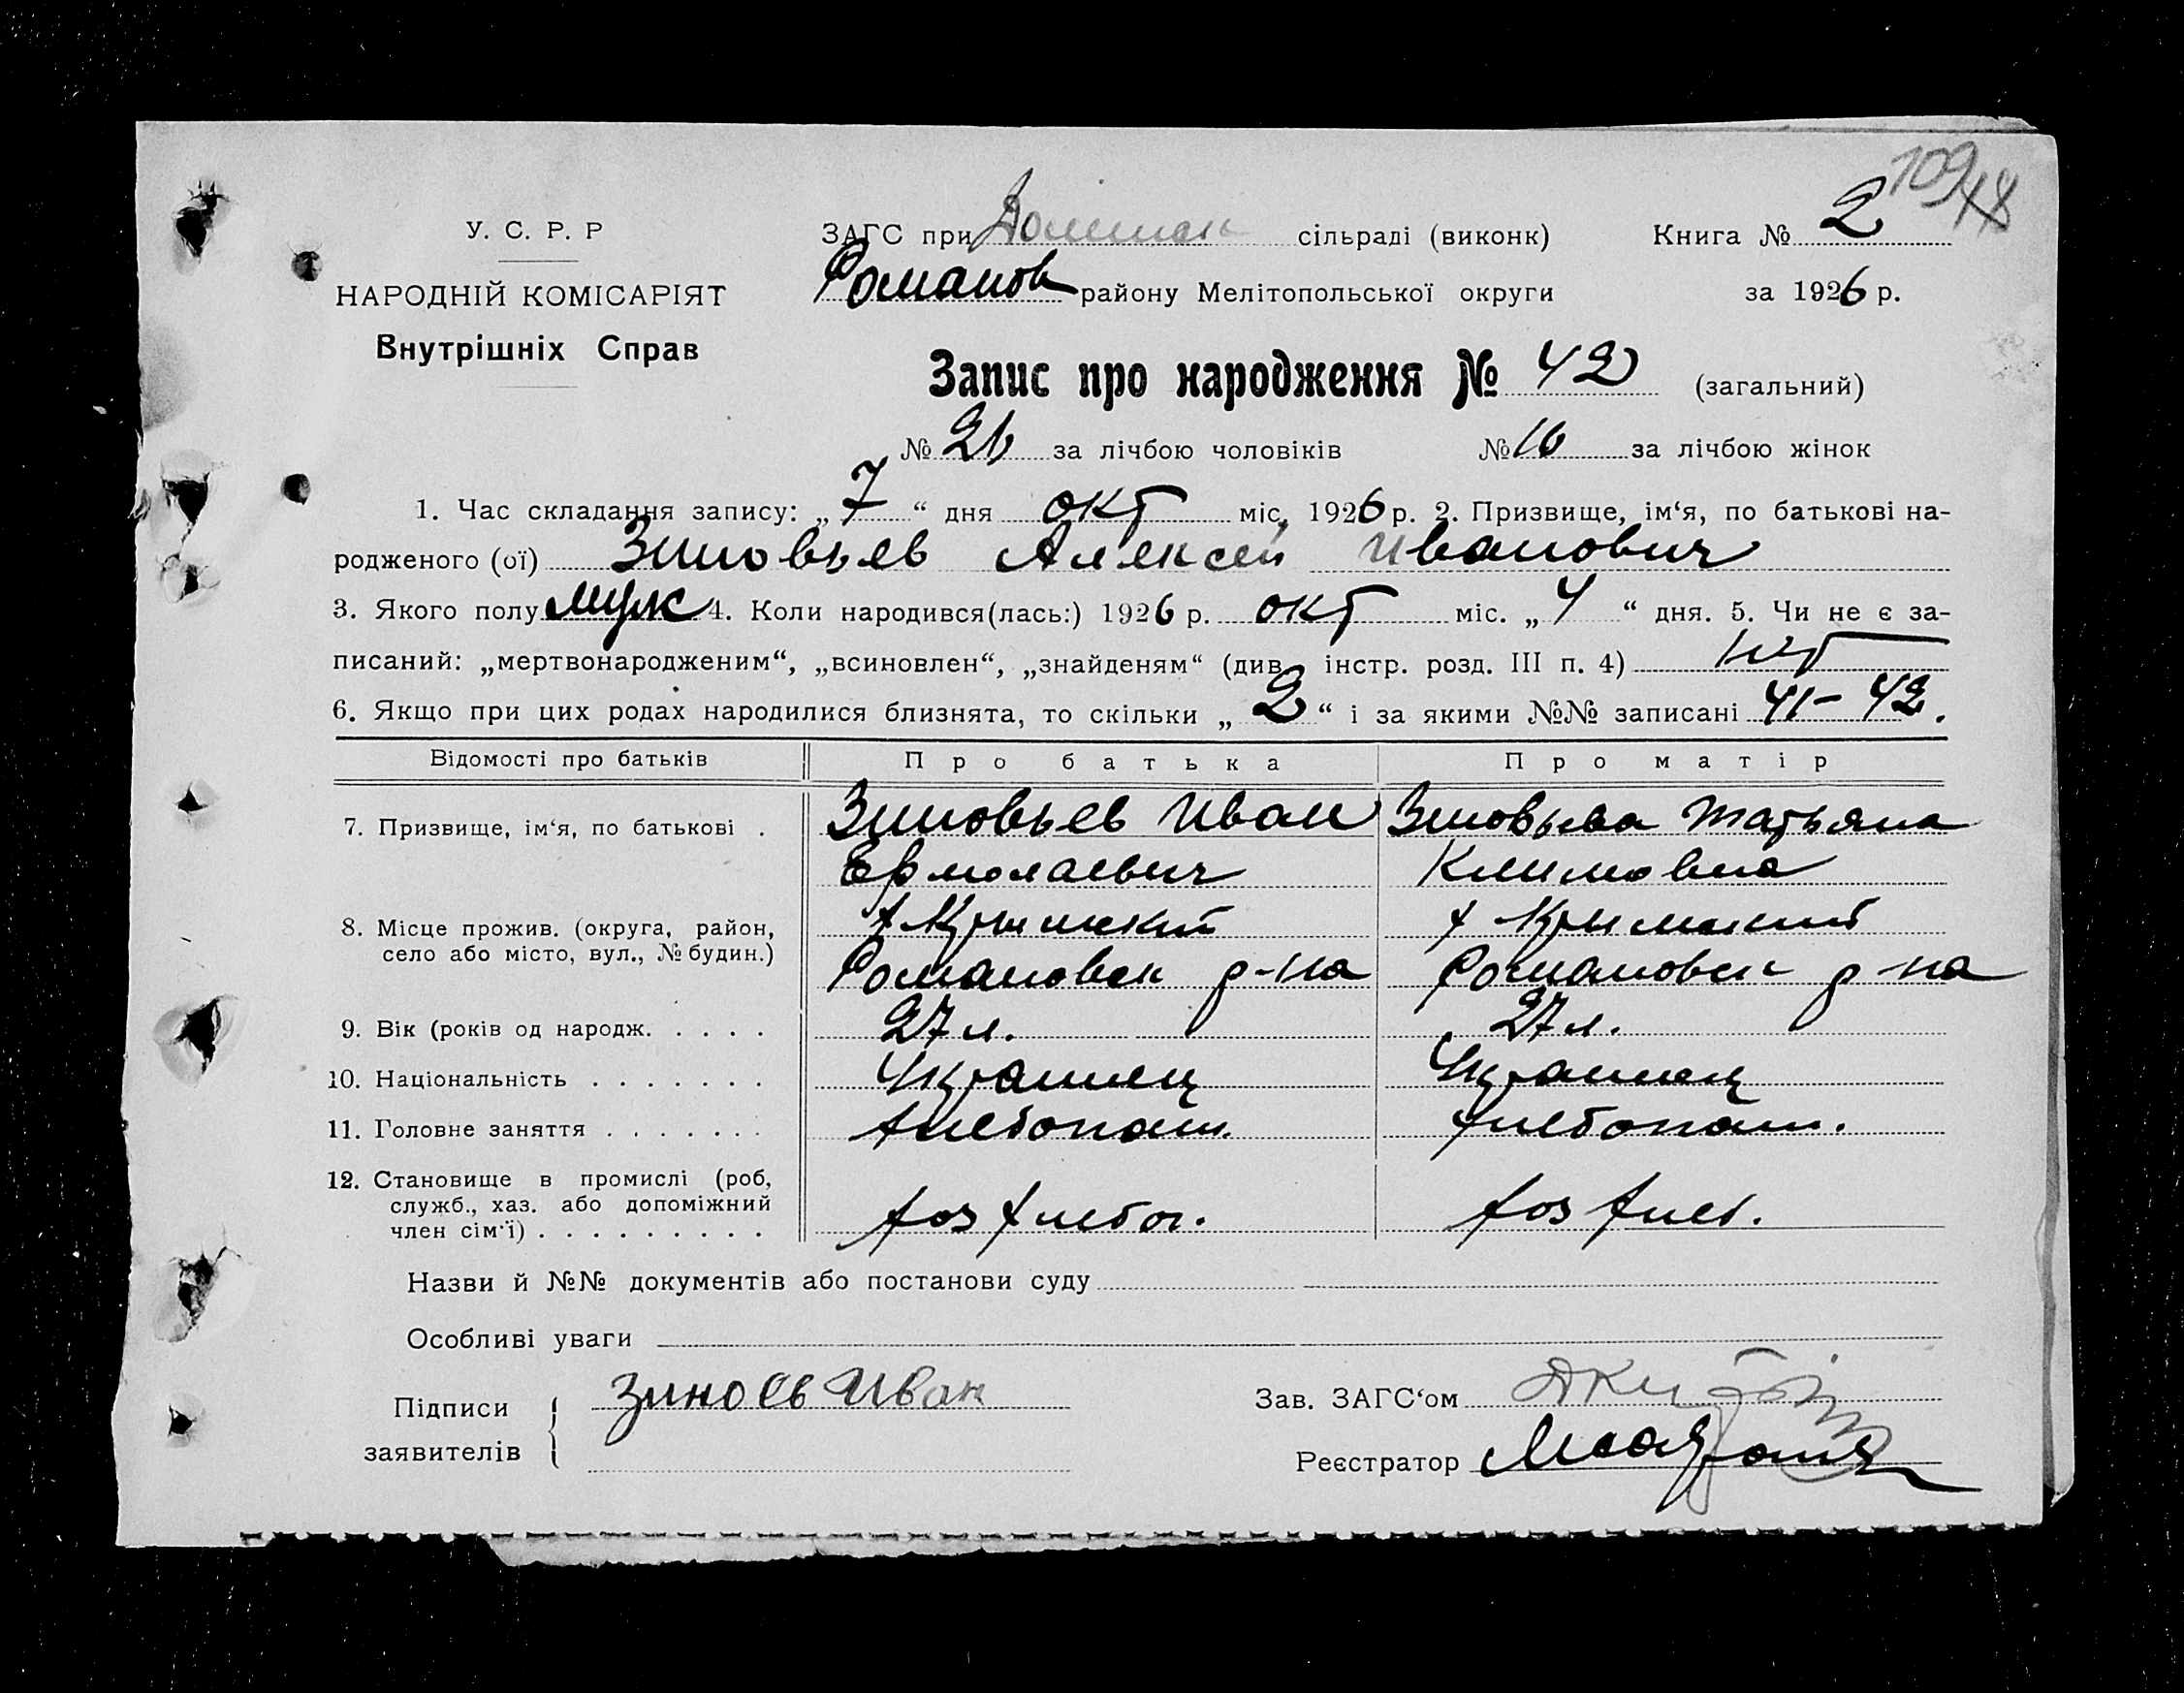 109 48
У. С. Р. Р
НАРОДНІЙ КОМІСАРІЯТ
Внутрішніх Справ
ЗАГС при сільраді (виконк)
Романов району Мелітопольської округи
Книга № 2
за 1926 р.
Запис про народження № 42 (загальний)
№ 26 за лічбою чоловіків № 16 за лічбою жінок
1. Час складання запису: „7“ дня окт міс, 1926 р. 2. Призвище, ім‘я, по батькові на-
родженого (ої) Зиновьев Алексей Иванович
3. Якого полу муж 4. Коли народився(лась:) 1926 р. окт міс. „4“ дня. 5. Чи не є за-
писаний: „мертвонародженим“, „всиновлен“, „знайденям“ (див. інстр. розд. III п. 4) нет
6. Якщо при цих родах народилися близнята, то скільки „2“ і за якими №№ записані 41-42.
Відомості про батьків Про батька Про матір
7. Призвище, ім‘я, по батькові . Зиновьев Иван Зиновьева Татьяна
Ермолаевич Климовна
8. Місце прожив. (округа, район, х Крымский х Крымский
село або місто, вул., № будин.) Романовск р-на Романовск р-на
9. Вік (років од народж. . . . . 27 л. 27 л.
10. Національність . . . . . . . Украинец Украинец
11. Головне заняття . . . . . . . хлебопаш. хлебопаш.
12. Становище в промислі (роб,
служб., хаз. або допоміжний
член сім‘ї) . . . . . . . . . хоз хлебоп. хоз хлеб.
Назви й №№ документів або постанови суду
Особливі уваги
Підписи
заявителів
Зиноев Иван
Зав. ЗАГС‘ом
Реєстратор